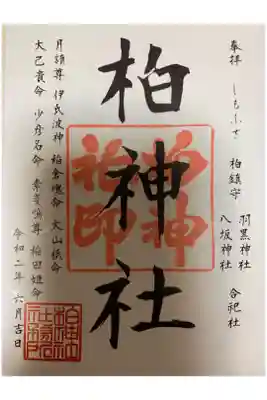 奉拝 しもふさ 柏鎮守 羽黒神社
八坂神社 合祀社
柏神社
月讀尊 伊氏波神 稲倉魂命 大山祇命
大己貴命 少彦名命 素戔嗚尊 稲田姫命
令和二年 六月吉日